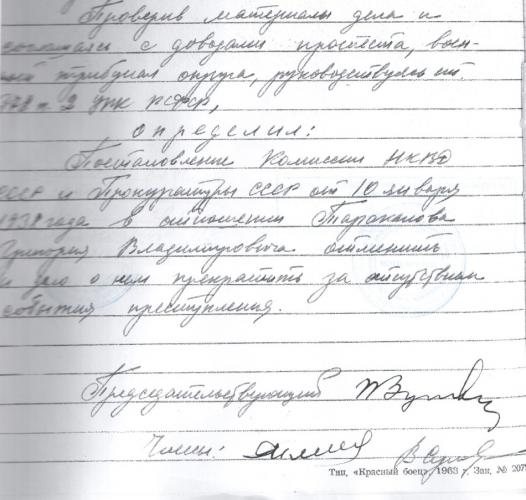 Проверив материалы дела и
соглашаясь с доводами протеста, воен-
ный трибунал округа, руководствуясь ст.
378 п. 2 УПК РСФСР,
определил:
Постановление Комиссии НКВД
СССР и Прокуратуры СССР от 10 января
1938 года в отношении Тараканова
Григория Владимировича отменить
и дело о нем прекратить за отсутствием
события преступления.
Председательствующий
Члены:
Тип. «Красный боец» 1963 г. Зак. № 207